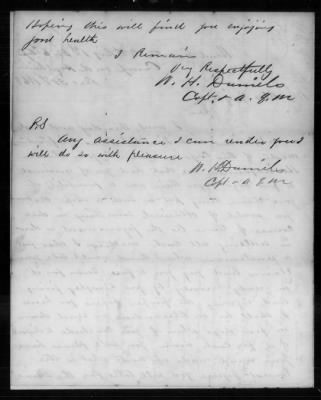 Hoping this will find you enjoying
good health
I Remain
Very Respectfully
W. H. Daniels
Capt. & A.Q.M
PS
Any assistance I can render you I
will do so with pleasure
W. H. Daniels
Capt & A.Q.M